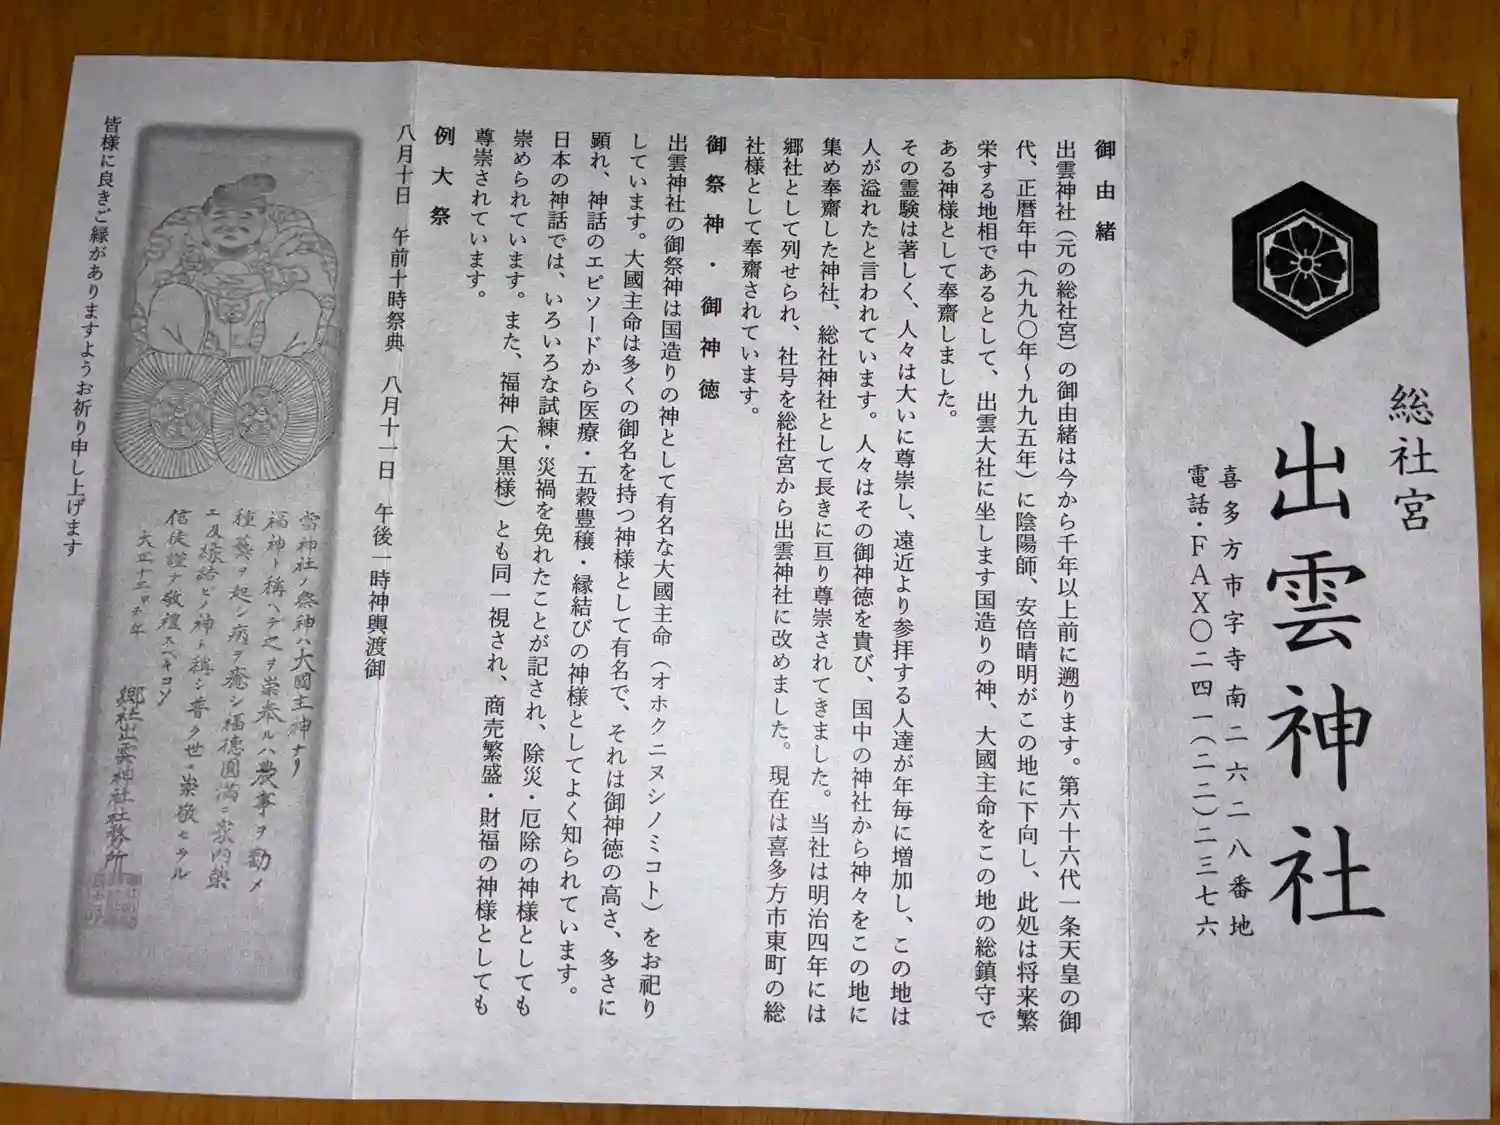 総社宮
出雲神社
喜多方市字寺南二六二八番地
電話・FAX〇二四一(二二)二三七六
御由緒
出雲神社(元の総社宮)の御由緒は今から千年以上前に遡ります。第六十六代一条天皇の御
代、正暦年中(九九〇年～九九五年)に陰陽師、安倍晴明がこの地に下向し、此処は将来繁
栄する地相であるとして、出雲大社に坐します国造りの神、大國主命をこの地の総鎮守で
ある神様として奉齋しました。
その霊験は著しく、人々は大いに尊崇し、遠近より参拝する人達が年毎に増加し、この地は
人が溢れたと言われています。人々はその御神徳を貴び、国中の神社から神々をこの地に
集め奉齋した神社、総社神社として長きに亘り尊崇されてきました。当社は明治四年には
郷社として列せられ、社号を総社宮から出雲神社に改めました。現在は喜多方市東町の総
社様として奉齋されています。
御祭神・御神徳
出雲神社の御祭神は国造りの神として有名な大國主命(オホクニヌシノミコト)をお祀り
しています。大國主命は多くの御名を持つ神様として有名で、それは御神徳の高さ、多さに
顕れ、神話のエピソードから医療・五穀豊穣・縁結びの神様としてよく知られています。
日本の神話では、いろいろな試練・災禍を免れたことが記され、除災・厄除の神様としても
崇められています。また、福神(大黒様)とも同一視され、商売繁盛・財福の神様としても
尊崇されています。
例大祭
八月十日 午前十時祭典 八月十一日 午後一時神輿渡御
當神社ノ祭神ハ大國主神ナリ
福神ト稱ヘデ之ヲ崇奉ルハ農事ヲ勸メ
種藝ヲ起シ病ヲ癒シ福徳圓滿ニ家内樂
エ及縁結ビノ神ト稱シ普ク世ニ崇敬セラル
信徒謹テ敬禮スベキコソ
大正十二年
郷社出雲神社社務所
皆様に良きご縁がありますようお祈り申し上げます